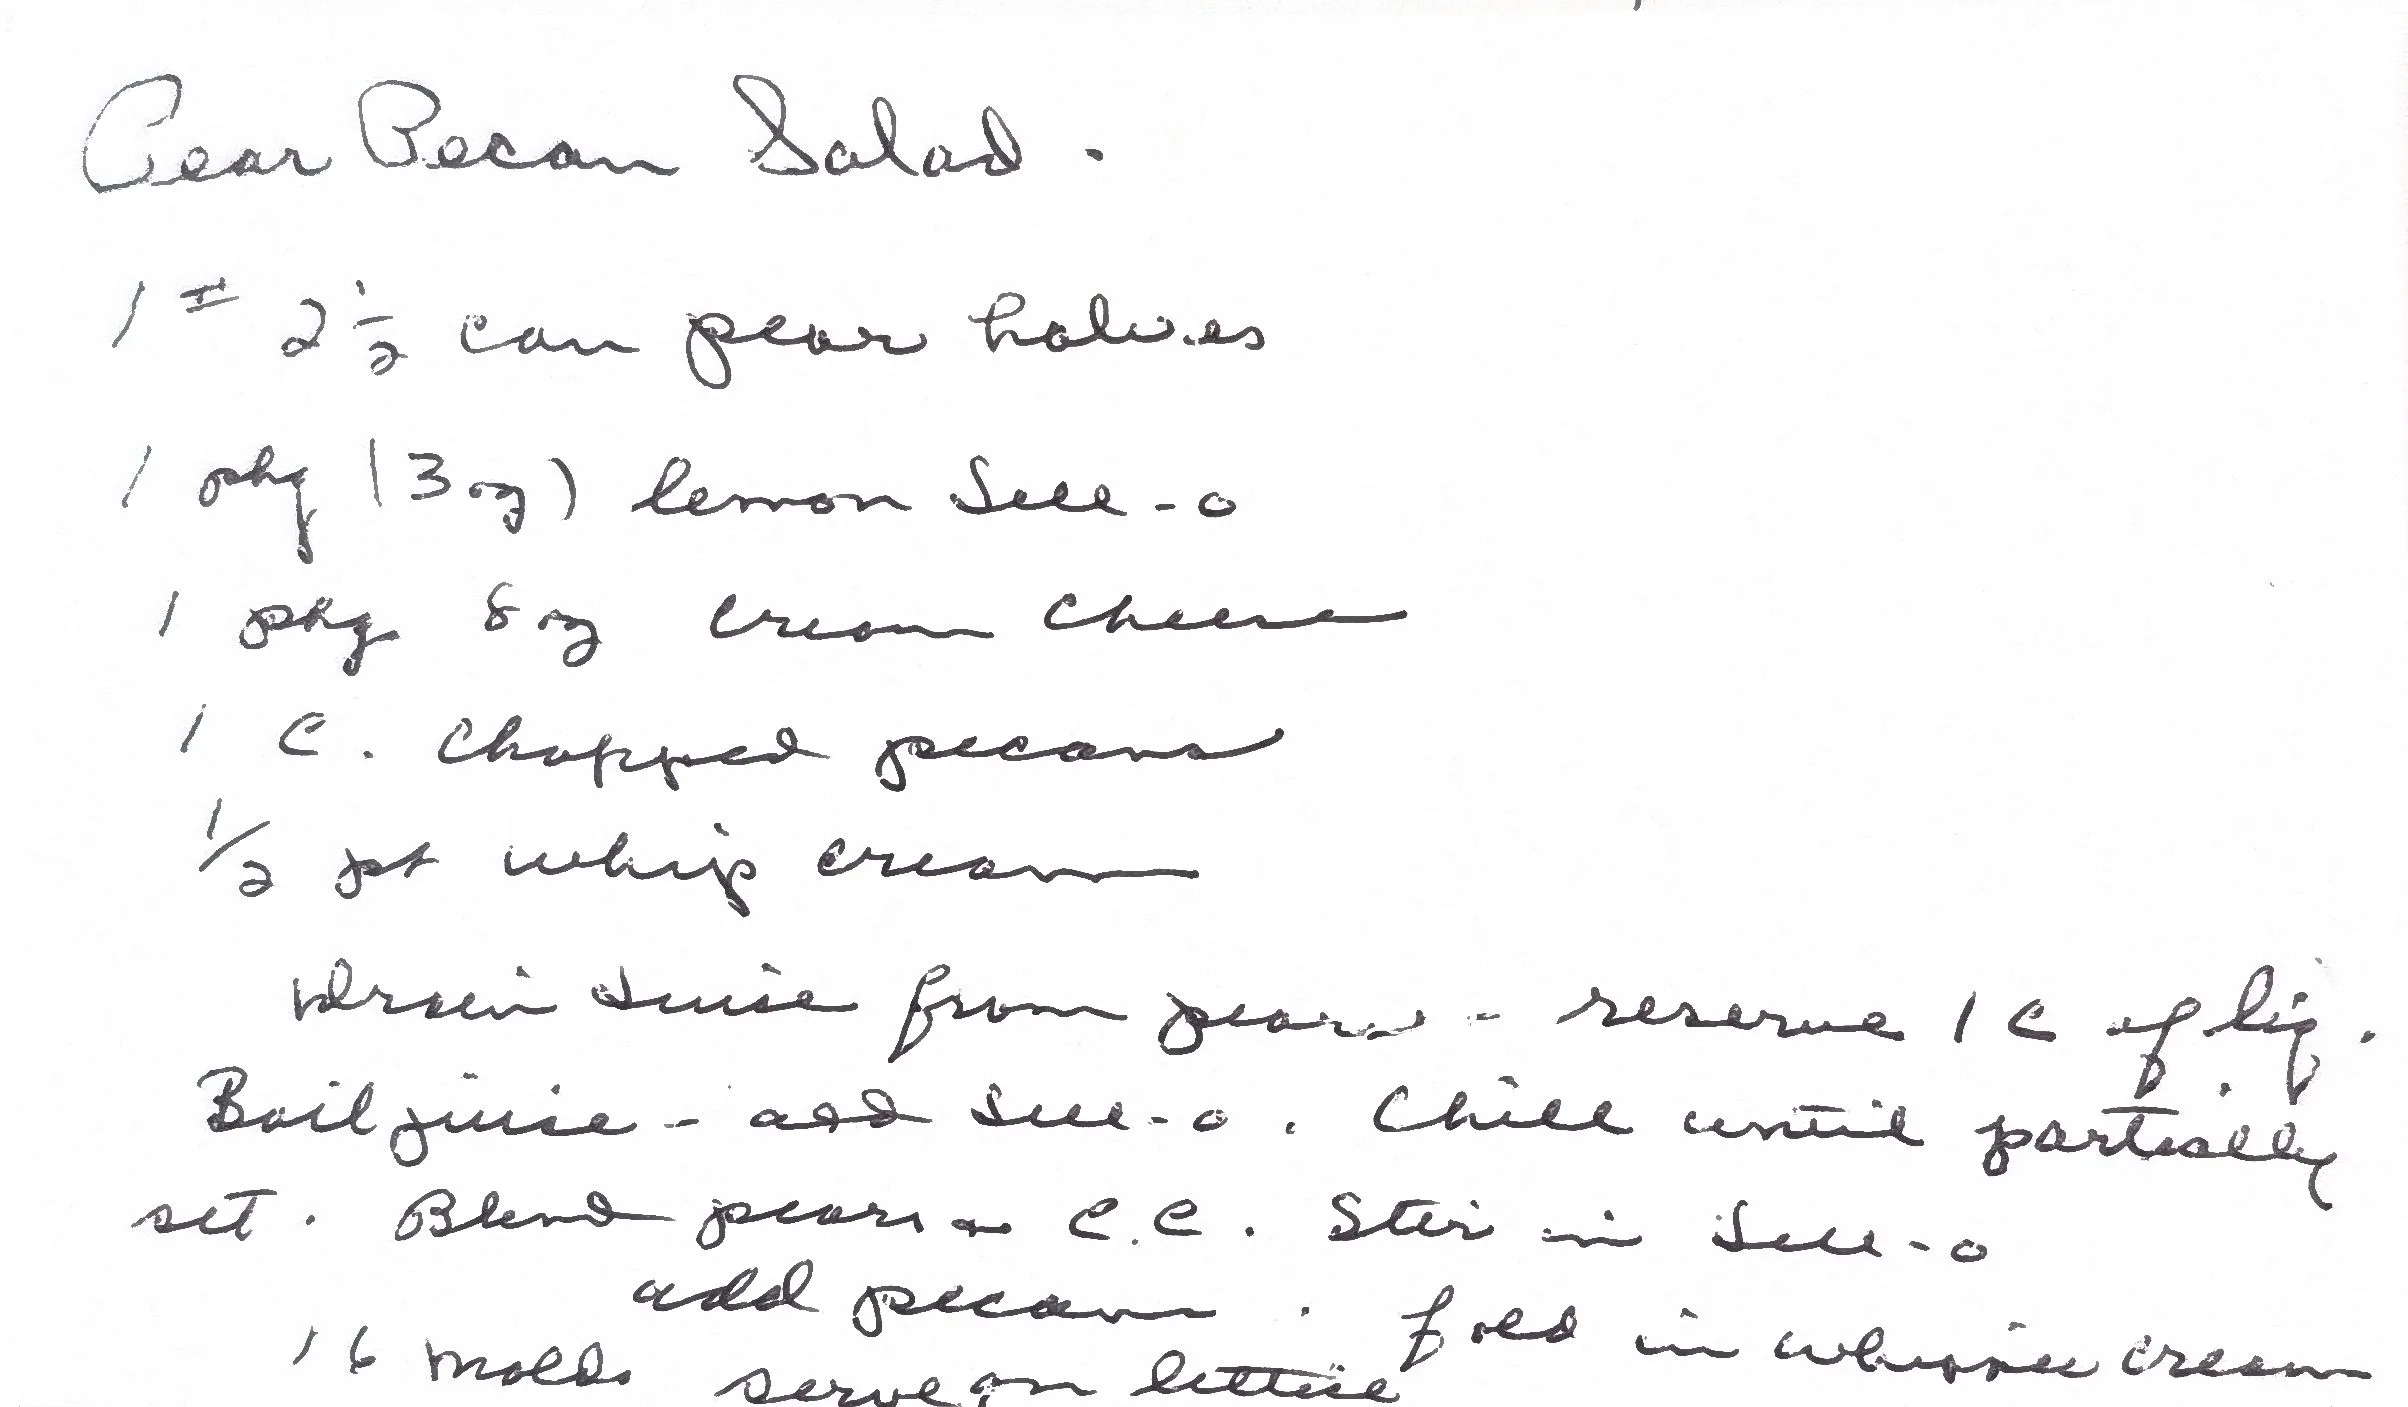 Pear Pecan Salad.
1 # 2 1/2 can pear halves
1 pkg (3 oz) lemon Jell-o
1 pkg 8 oz cream cheese
1 C. chopped pecans
1/2 pt whip cream
Drain juice from pears - reserve 1 C of liq.
Boil juice - add Jell-o. Chill until partially
set. Blend pears C.C. Stir in Jell-o
add pecans. fold in whipped cream
16 molds serve on lettuce